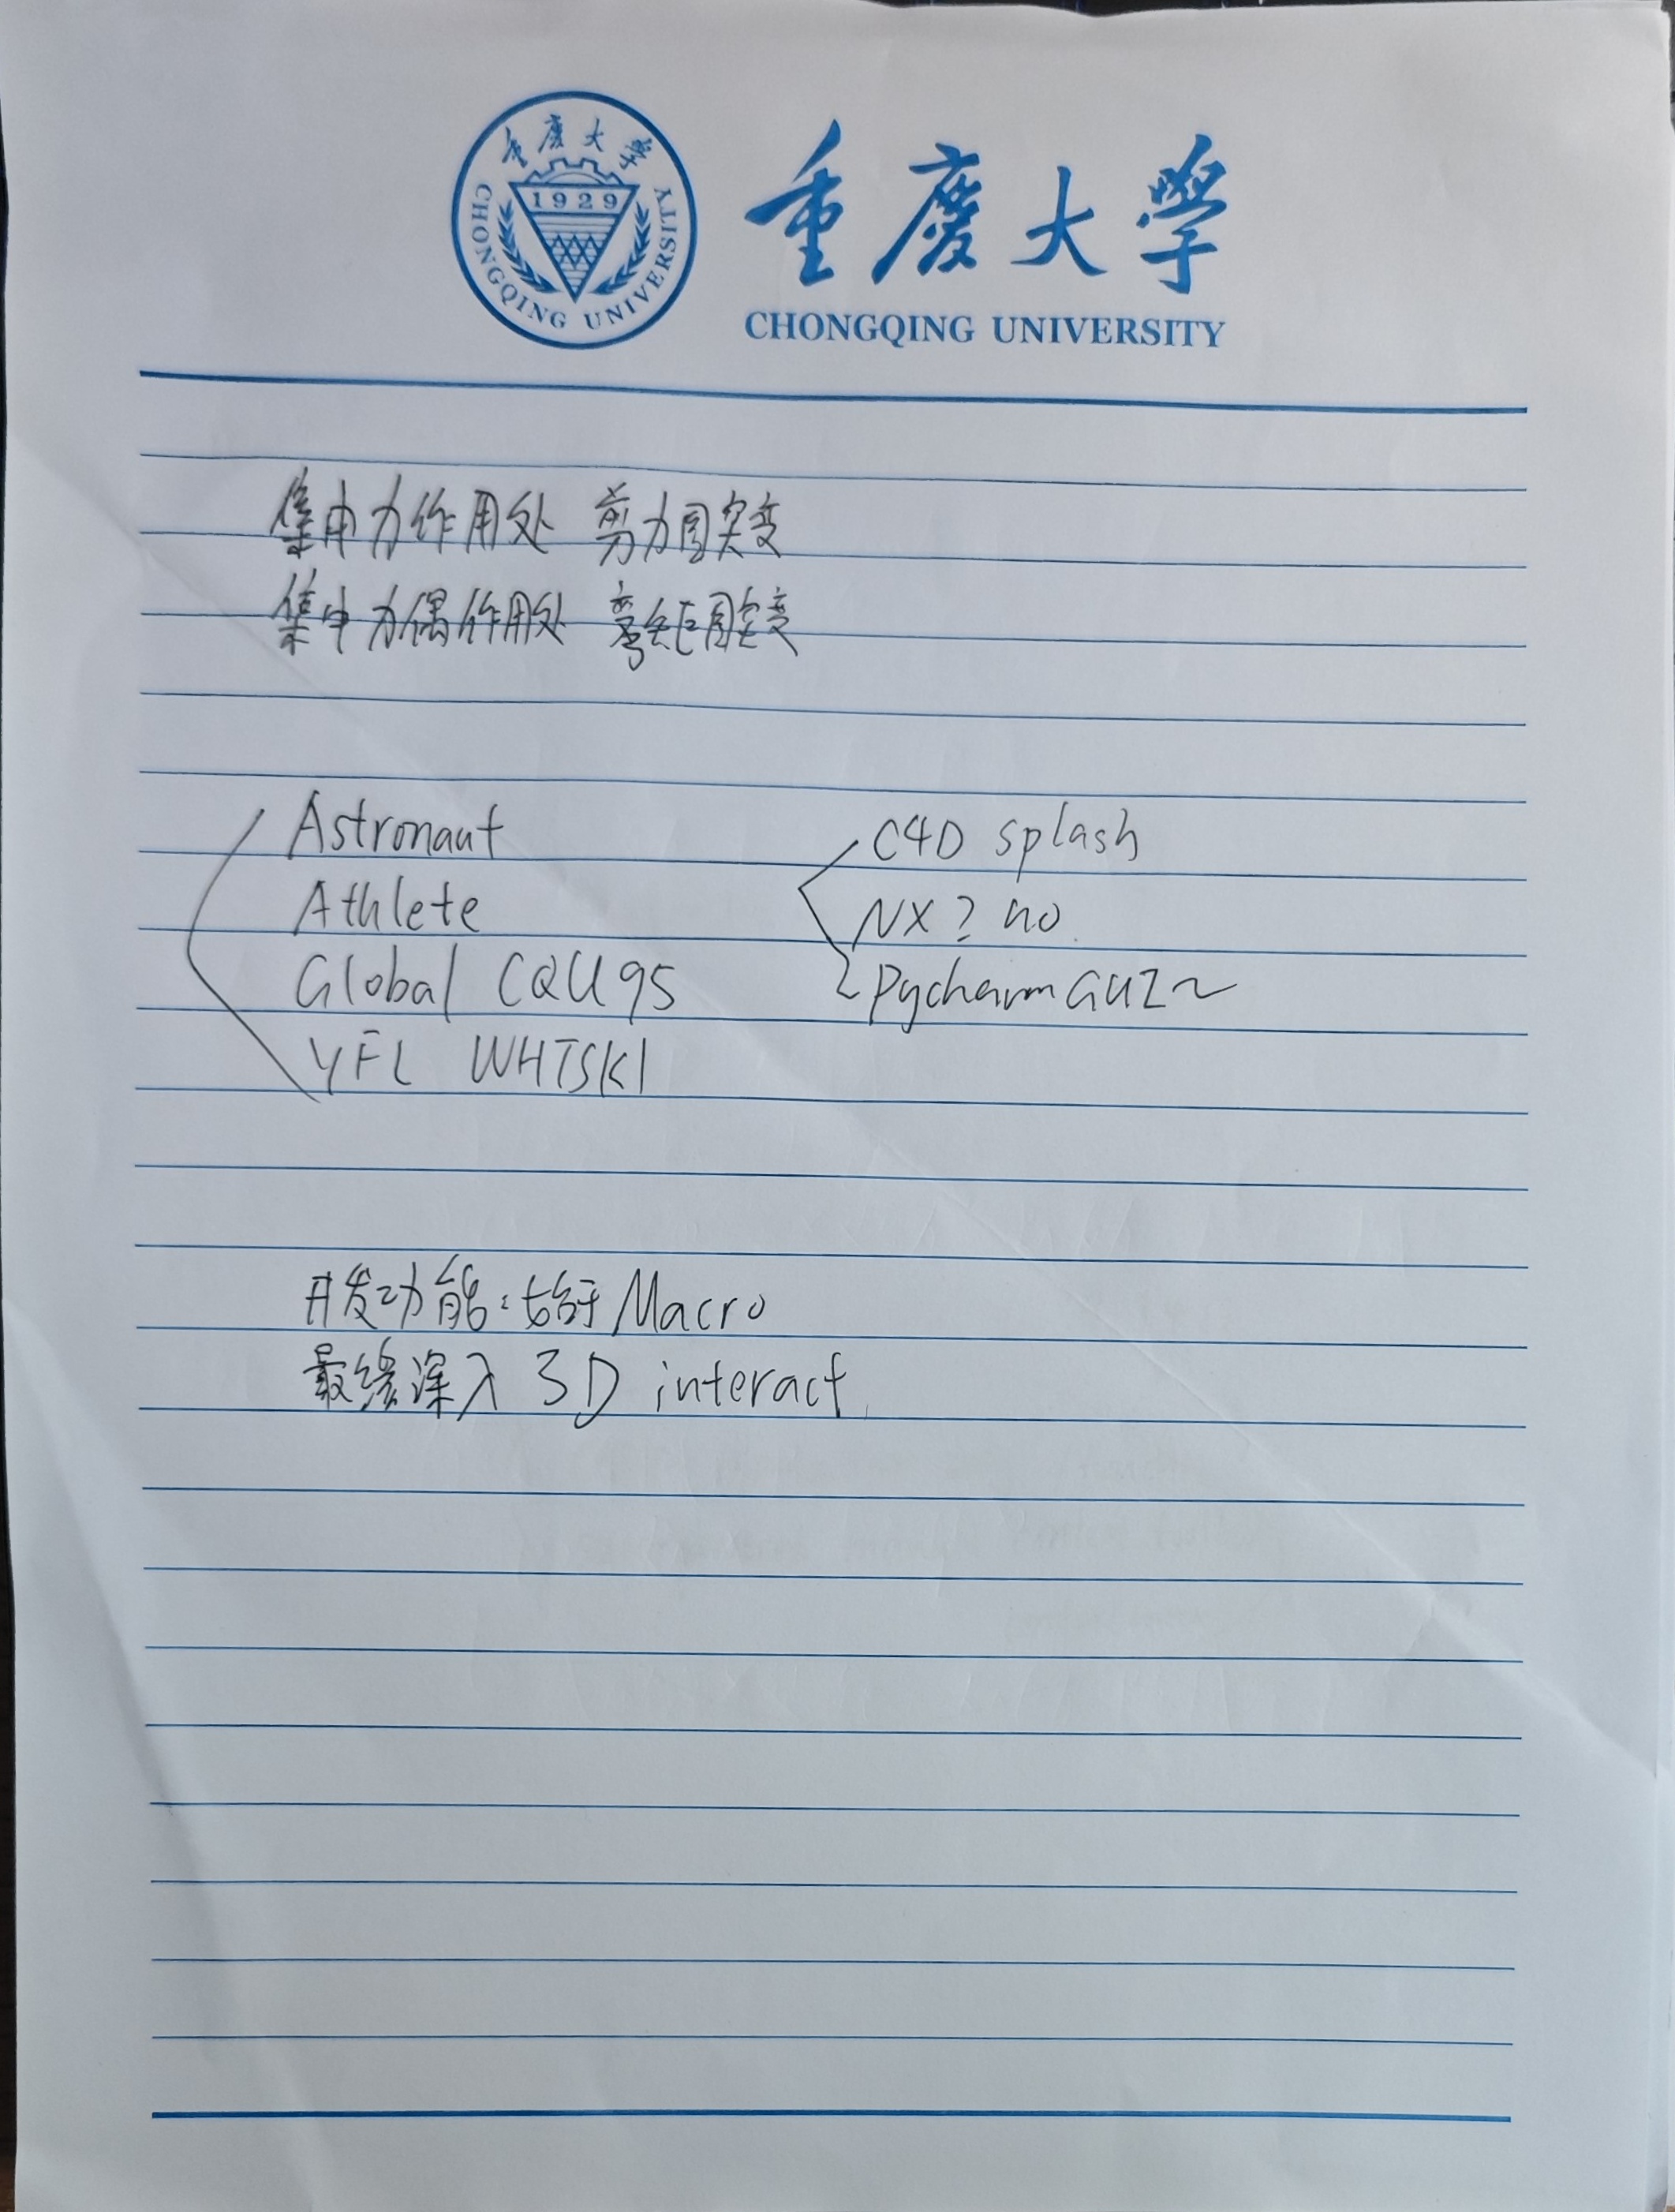 重庆大学
1929
CHONGQING UNIVERSITY
重慶大學
CHONGQING UNIVERSITY
集中力作用处 剪力图突变
集中力偶作用处 弯矩图突变
Astronaut
Athlete
Global CQU 95
YFL WHTSKI
C4D splash
NX? no
Pycharm GUI~
开发功能:始于Macro
最终深入 3D interact